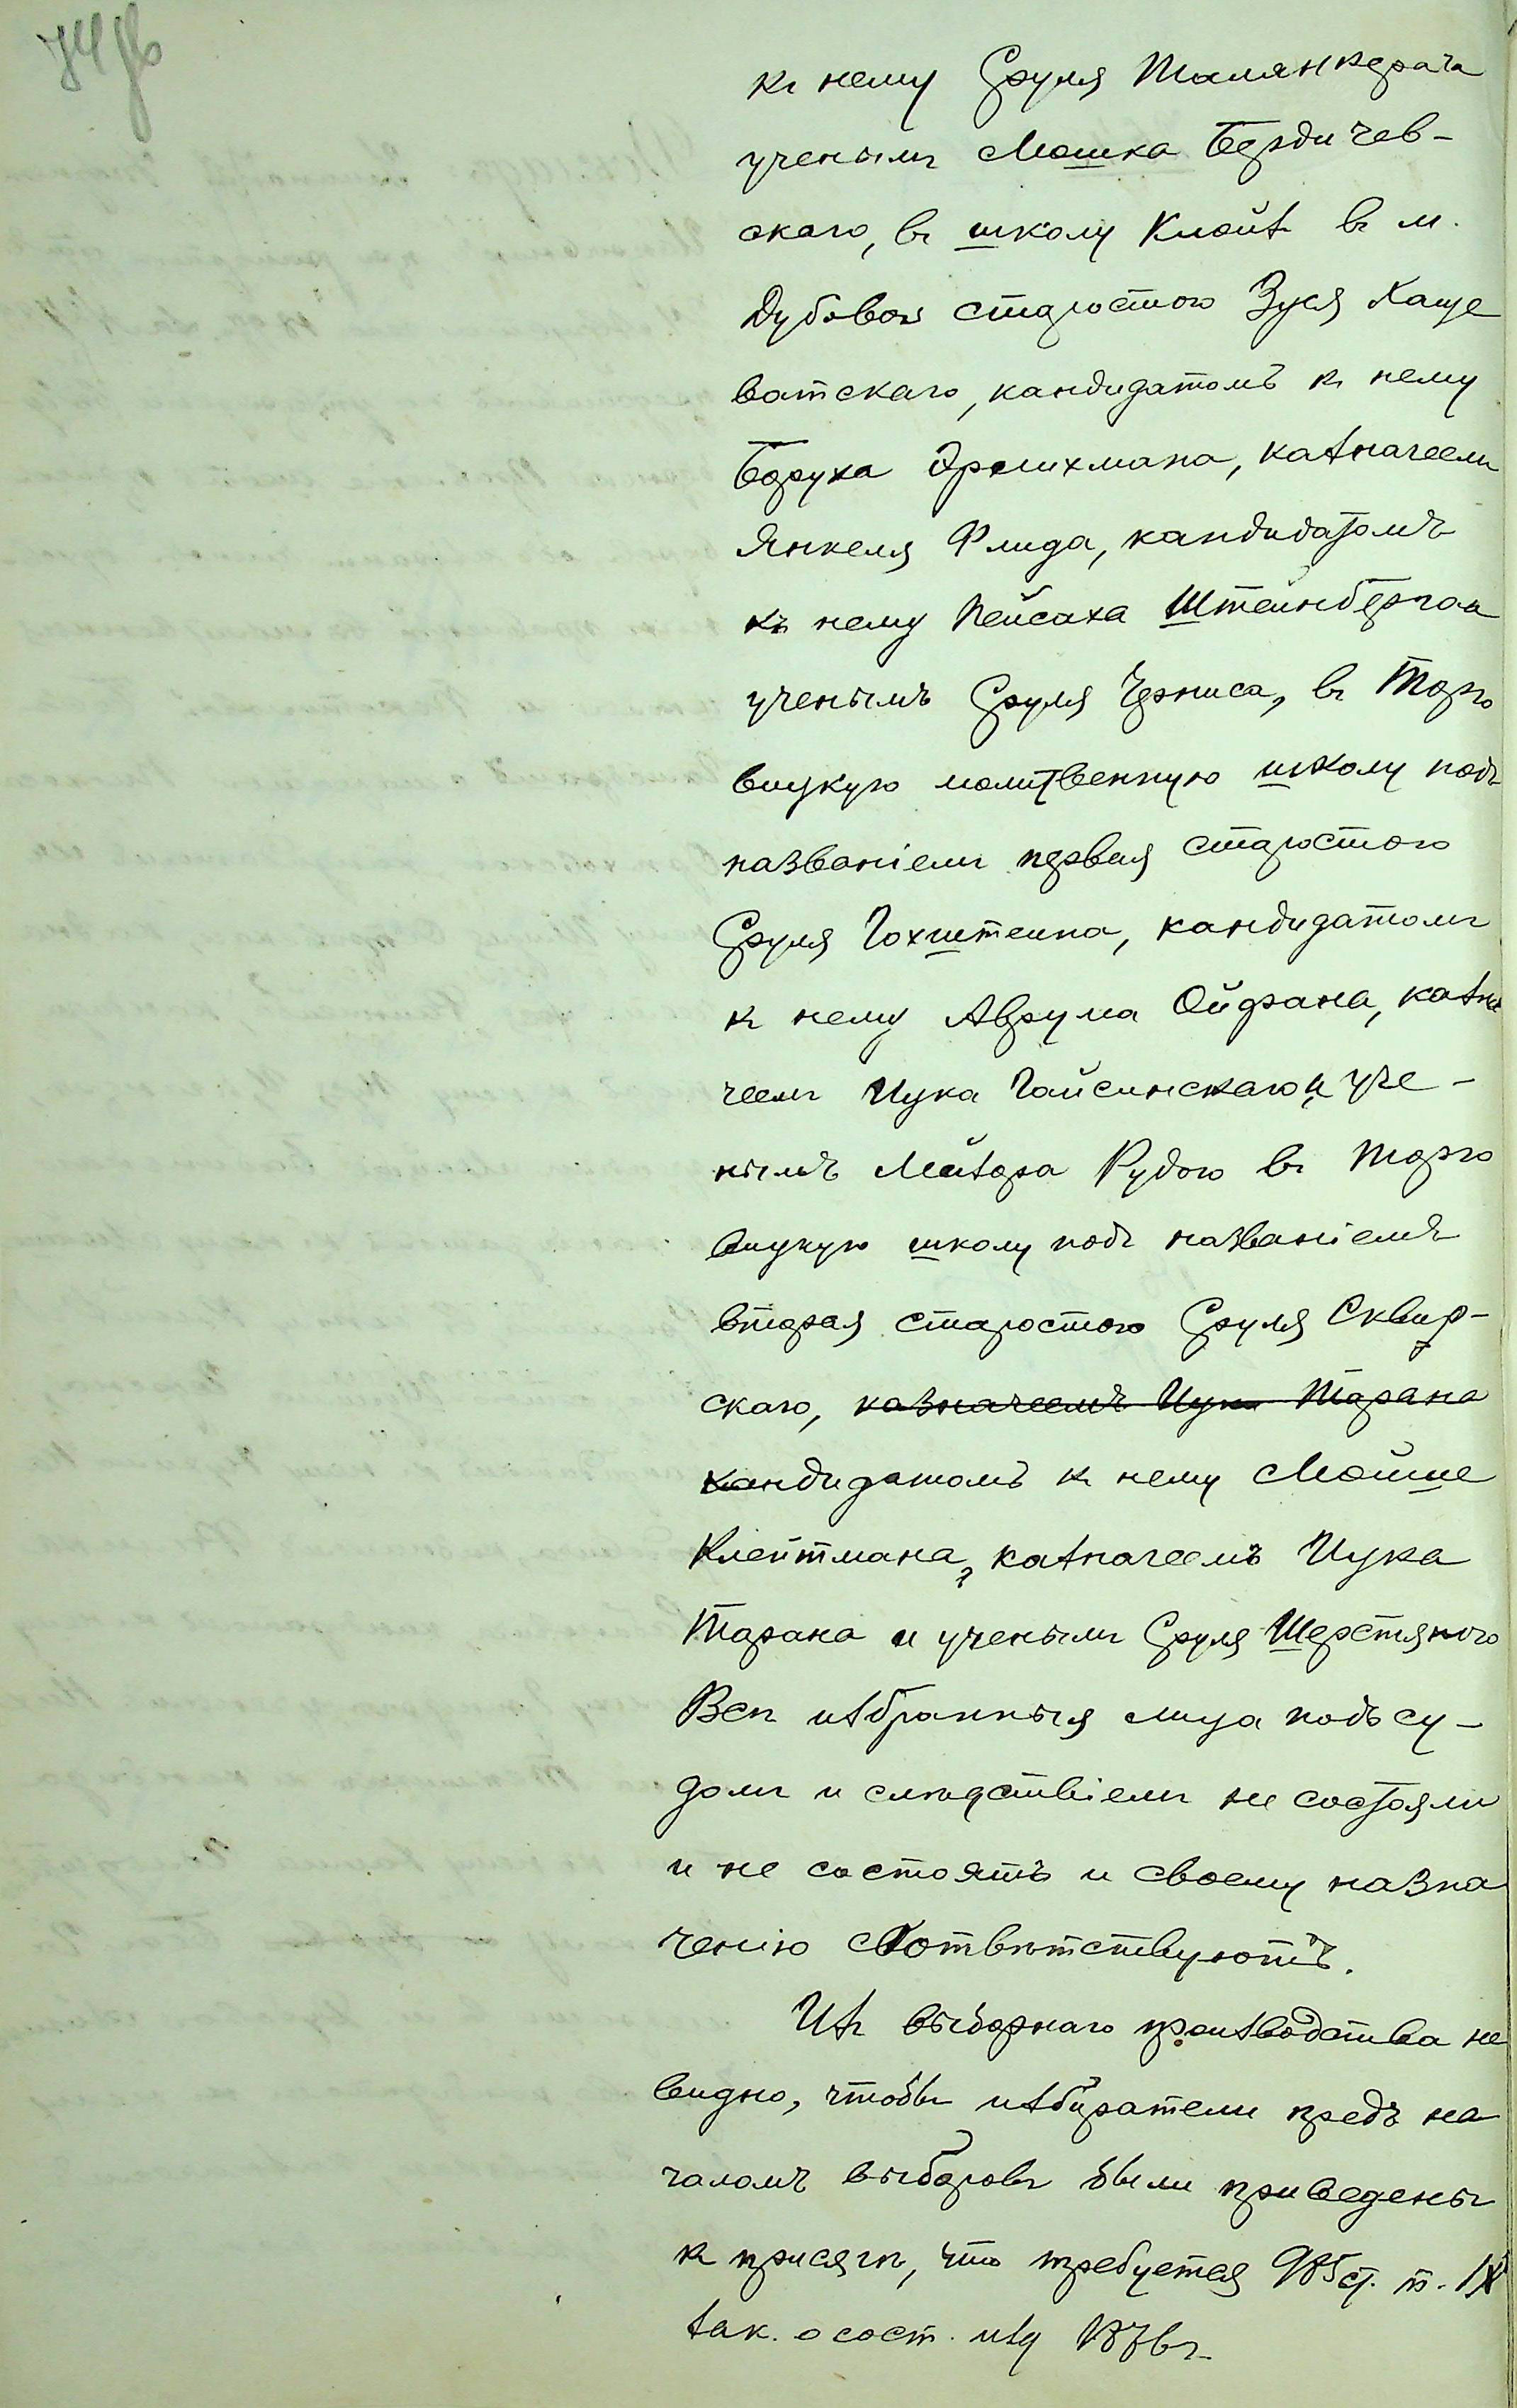 къ нему Сруля Талянкерача
ученымъ Мошка Бердичев-
скаго, въ школу Клойз въ м.
Дубовой старостою Зуся Каще
ватскаго, кандидатомъ къ нему
Боруха Эрлихмана, казначеемъ
Янкеля Флида, кандидатомъ
къ нему Пейсаха Штейнберга и
ученымъ Сруля Черниса, въ Торго
вицкую молитвенную школу подъ
названіемъ первая старостою
Сруля Гохштейна, кандидатомъ
къ нему Аврума Ойфмана, казна
чеемъ Ицка Гайсинскаго и уче-
нымъ Мейзора Рудого въ Торго
вицкую школу подъ названіемъ
вторая старостою Сруля Сквир-
скаго, казначеемъ Ицка Тарана
кандидатомъ къ нему Мойше
Клейтмана, казначеемъ Ицка
Тарана и ученымъ Сруля Шерстяного
Всѣ избранныя лица подъ су-
домъ и слѣдствіемъ не состояли
и не состоятъ и своему назна
ченію соотвѣтствуютъ.
Изъ выборнаго производства не
видно, чтобы избиратели предъ на
чаломъ выборовъ были приведены
къ присягѣ, что требуется 985 ст. т. IX
зак. о сост. изд 1876 г.